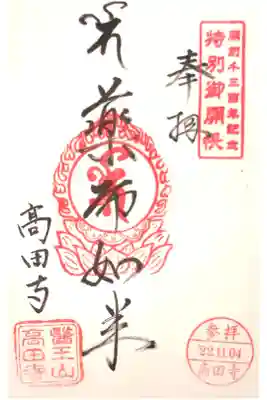 開創千三百年記念
特別御開帳
奉拝
薬师如来
高田寺
醫王山
高田寺
参拝
22.11.04
高田寺